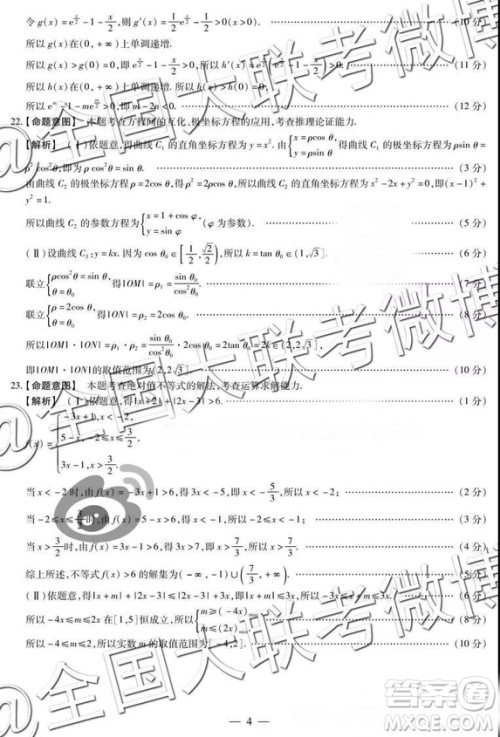 令g(x)=e^{x/2}-1-x/2,则g'(x)=1/2e^{x/2}-1/2>0(x>0). (10分)
所以g(x)在(0,+∞)上单调递增.
所以g(x)>g(0)=0,即e^{x/2}-1-x/2>0,所以h'(x)>0. (11分)
所以h(x)在(0,+∞)上单调递增.所以h(x)>h(0)=0,
(12分)
22.【命题意图】 本题考查方程间的互化、极坐标方程的应用,考查推理论证能力.
【解析】 (Ⅰ)依题意,得曲线C₁的直角坐标方程为y=x².由{x=ρcos θ, y=ρsin θ,
(3分)
由曲线C₂的极坐标方程ρ=2cos θ,得ρ²=2ρcos θ,得曲线C₂的直角坐标方程为x²-2x+y²=0,即(x-1)²+
y²=1.
所以曲线C₂的参数方程为{x=1+cos φ, y=sin φ (φ为参数). (5分)
(Ⅱ)设曲线C₃:y=kx.因为cos θ₀∈[1/2,√2/2],所以k=tan θ₀∈[1,√3]. (6分)
联立{ρcos²θ=sin θ, θ=θ₀, 得|OM|=ρ₁=sin θ₀/cos²θ₀. (7分)
联立{ρ=2cos θ, θ=θ₀, 得|ON|=ρ₂=2cos θ₀. (8分)
所以|OM|·|ON|=ρ₁·ρ₂=sin θ₀/cos²θ₀·2cos θ₀=2tan θ₀=2k∈[2,2√3].
所以|OM|·|ON|的取值范围为[2,2√3]. (10分)
23.【命题意图】 本题考查绝对值不等式的解法,考查运算求解能力.
【解析】 (Ⅰ)依题意,得|x+2|+|2x-3|>6. (1分)
f(x)={-3x+1,x<-2, 5-x,-2≤x≤3/2, 3x-1,x>3/2.
当x<-2时,由f(x)=-3x+1>6,得3x<-5,即x<-5/3,所以x<-2; (2分)
当-2≤x≤3/2时,由f(x)=5-x>6,得x<-1,所以-2≤x<-1; (3分)
当x>3/2时,由f(x)=3x-1>6,得3x>7,即x>7/3,所以x>7/3. (4分)
综上所述,不等式f(x)>6的解集为(-∞,-1)∪(7/3,+∞). (5分)
(6分)
(8分)
所以-4≤m≤2,所以实数m的取值范围为[-4,2]. (10分)
— 4 —
@全国大联考微博
答案圈
MXQE.COM